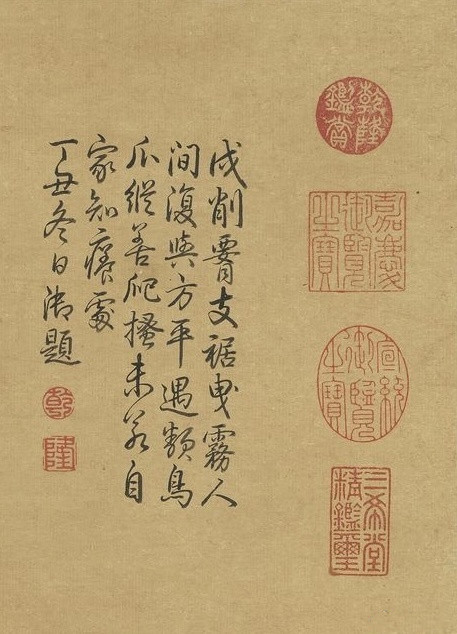 乾隆鑑賞
嘉慶御覽之寶
宣統御覽之寶
三希堂精鑑璽
戌削腰支裾曳霧人
間復與方平遇類鳥
爪縱善爬搔未若自
家知癢處
丁丑冬日御題
乾
隆